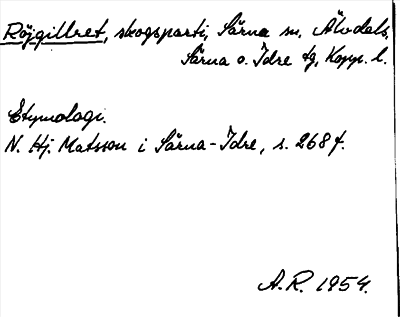 Röjgillret, skogsparti, Särna sn, Älvdals,
Särna o. Idre tg, Kopp. l.
Etymologi.
N. Hj. Matsson i Särna-Idre, s. 268 f.
A.R. 1954.